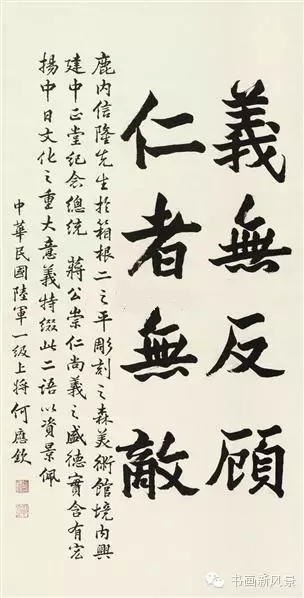 義無反顧
仁者無敵
鹿內信隆先生於箱根二之平彫刻之森美術館境內興
建中正堂紀念總統 蔣公崇仁尚義之盛德實含有宏
揚中日文化之重大意義特綴此二語以資景佩
中華民國陸軍一級上將何應欽
书画新风景